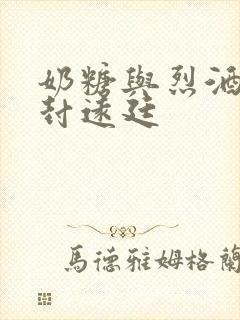 奶糖與烈酒
封遠廷
馬德雅姆格蘭